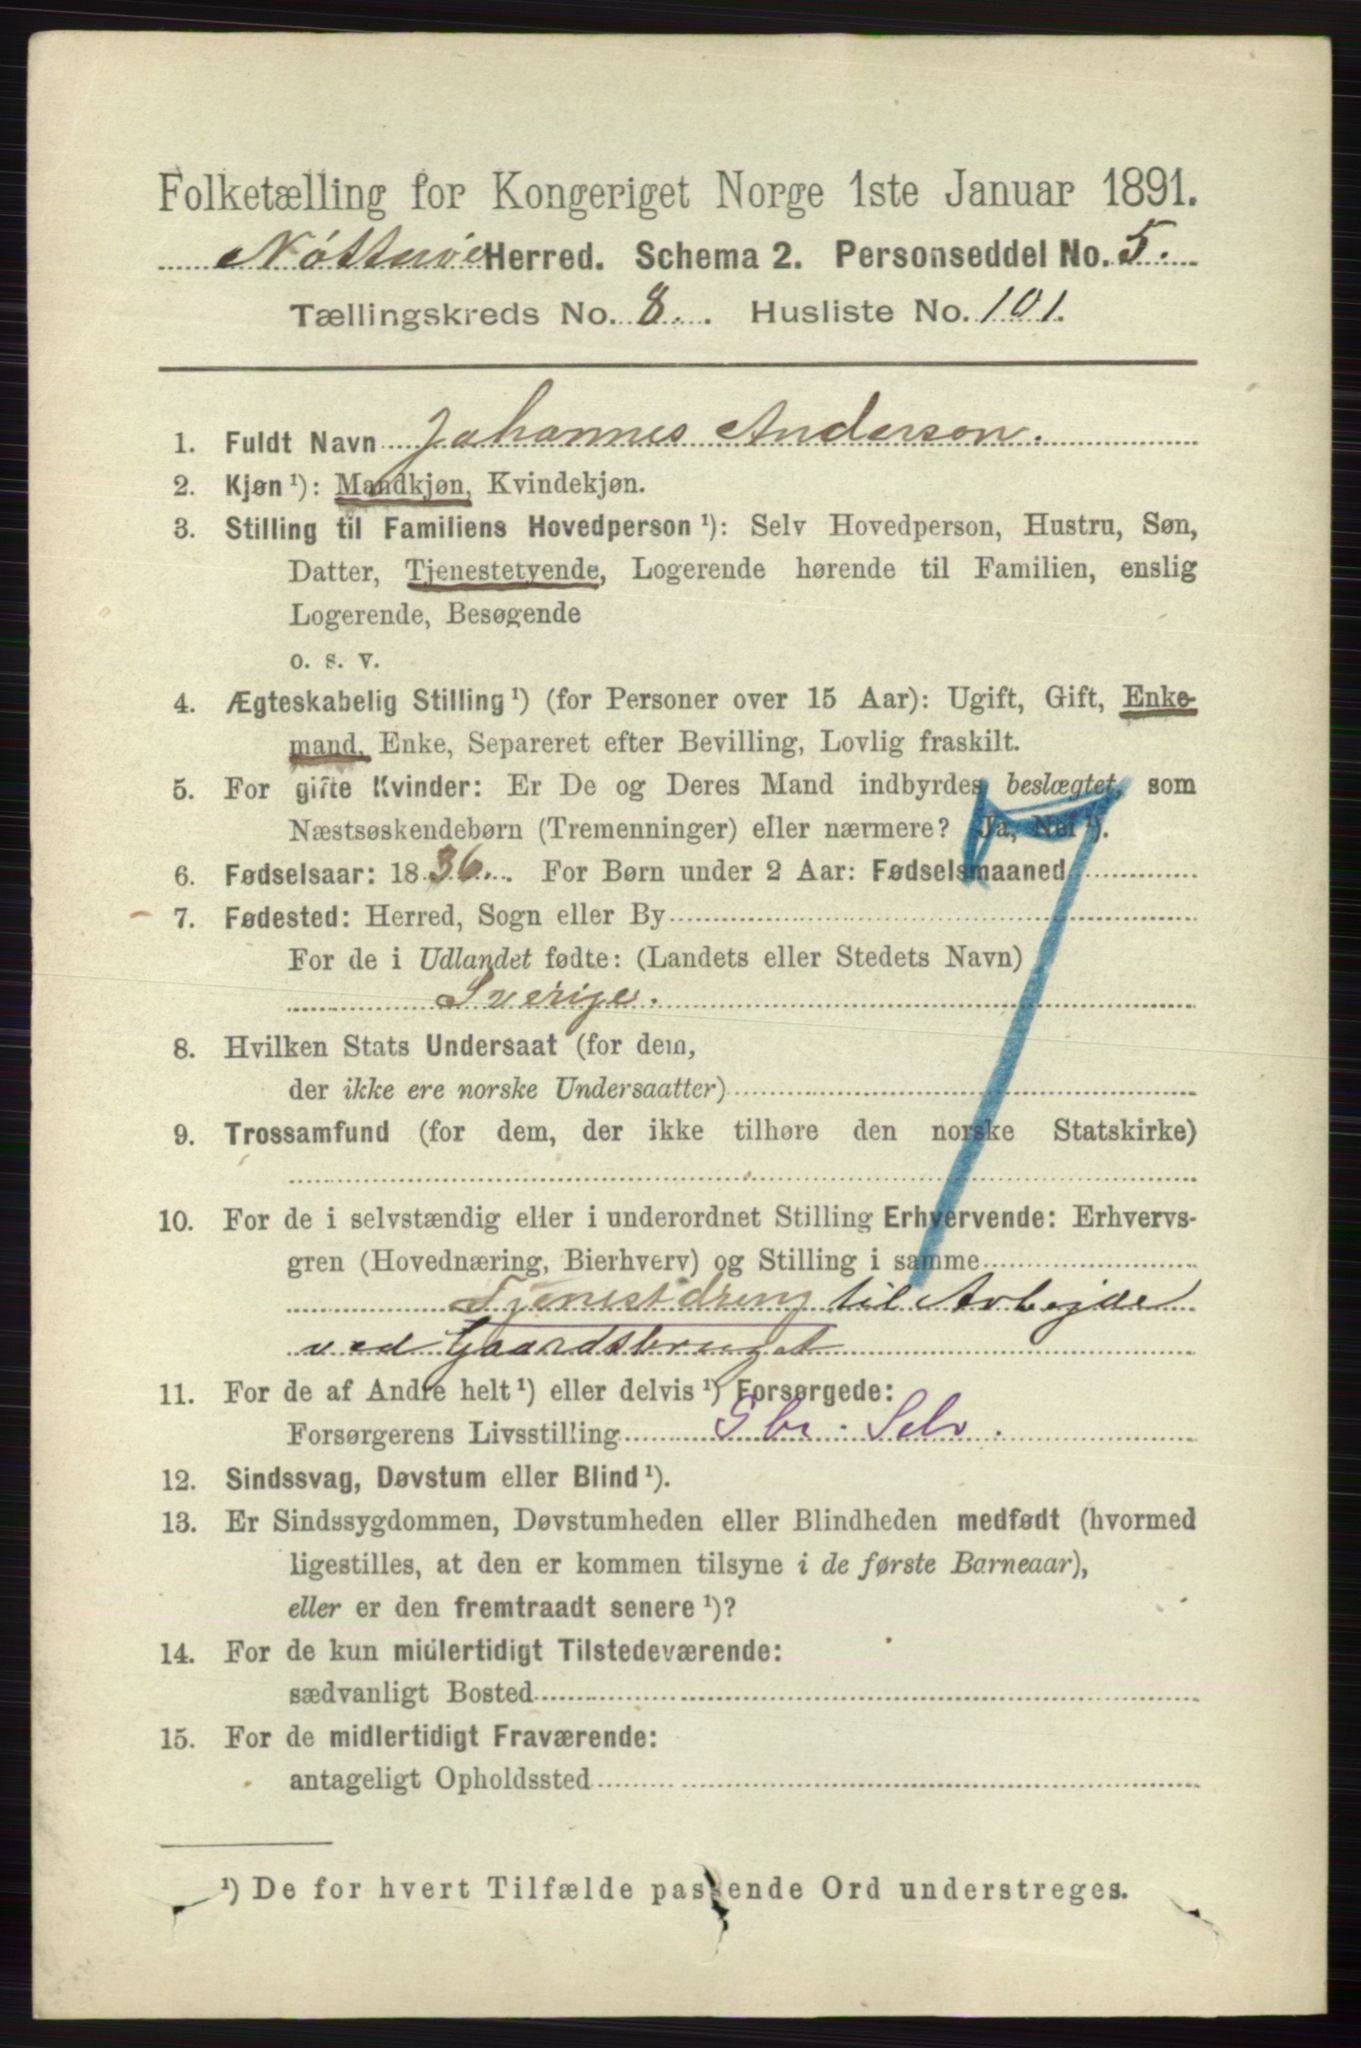 Folketælling for Kongeriget Norge 1ste Januar 1891.
Nøtterø Herred. Schema 2. Personseddel No. 5.
Tællingskreds No. 8. Husliste No. 101.
1. Fuldt Navn Johannes Anderson.
2. Kjøn ¹): Mandkjøn, Kvindekjøn.
3. Stilling til Familiens Hovedperson ¹): Selv Hovedperson, Hustru, Søn,
Datter, Tjenestetyende, Logerende hørende til Familien, enslig
Logerende, Besøgende
o. s. v.
4. Ægteskabelig Stilling ¹) (for Personer over 15 Aar): Ugift, Gift, Enke-
mand, Enke, Separeret efter Bevilling, Lovlig fraskilt.
5. For gifte Kvinder: Er De og Deres Mand indbyrdes beslægtet, som
Næstsøskendebørn (Tremenninger) eller nærmere? Ja, Nei ¹).
6. Fødselsaar: 1836. For Børn under 2 Aar: Fødselsmaaned
7. Fødested: Herred, Sogn eller By
For de i Udlandet fødte: (Landets eller Stedets Navn)
Sverige.
8. Hvilken Stats Undersaat (for dem,
der ikke ere norske Undersaatter)
9. Trossamfund (for dem, der ikke tilhøre den norske Statskirke)
10. For de i selvstændig eller i underordnet Stilling Erhvervende: Erhvervs-
gren (Hovednæring, Bierhverv) og Stilling i samme
Tjenestdreng til Arbejde
ved Gaardsbruget
11. For de af Andre helt ¹) eller delvis ¹) Forsørgede:
Forsørgerens Livsstilling Gbr. Selv.
12. Sindssvag, Døvstum eller Blind ¹).
13. Er Sindssygdommen, Døvstumheden eller Blindheden medfødt (hvormed
ligestilles, at den er kommen tilsyne i de første Barneaar),
eller er den fremtraadt senere ¹)?
14. For de kun midlertidigt Tilstedeværende:
sædvanligt Bosted
15. For de midlertidigt Fraværende:
antageligt Opholdssted
¹) De for hvert Tilfælde passende Ord understreges.